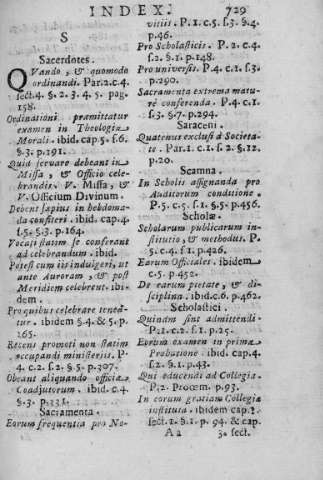 INDEX.
729
S
Sacerdotes.
QVando, & quomodo
ordinandi. Par.2.c.4.
sect.4. §. 2.3.4. 5. pag.
158.
Ordinationi præmittatur
examen in Theologia
Morali. ibid. cap 5. s.6.
§.3. p.191.
Quid servare debeant in
Missa, & Officio cele-
brandis. V. Missa, &
V. Officium Divinum.
Debent sæpius in hebdoma-
da confiteri. ibid. cap.4.
s.5. §.3. p.164.
Vocati statim se conferant
ad celebrandum. ibid.
Potest cum iis indulgeri, ut
ante Auroram, & post
Meridiem celebrent. ibi-
dem.
Pro quibus celebrare tenea-
tur. ibidem §.4. & 5. p.
165.
Recens promoti non statim
occupandi ministeriis. P.
4. c.2. s.2. §. 5. p.307.
Obeant aliquando officia
Coadjutorum. ibid. c.4.
§.3. p.331.
Sacramenta.
Eorum frequentia pro No-
vitiis. P.1. c.5. s.3. §.4.
p.46.
Pro Scholasticis. P.2. c.4.
s.2. §.1. p.148.
Pro universis. P.4. c.1. s.3.
p.290.
Sacramenta extrema matu-
rè conferenda. P.4. c.1.
s.3. §.7. p.294.
Saraceni.
Quatenus exclusi à Societa-
te. Par.1. c.1. s.2. §.12.
p.20.
Scamna.
In Scholis assignanda pro
Auditorum conditione.
P.5. c.5. s.1. §.5. p.456.
Scholæ.
Scholarum publicarum in-
stitutio, & methodus. P.
5. c.4. s.1. p.426.
Earum Officiales. ibidem
c.5. p.452.
De earum pietate, & di-
sciplina. ibid. c.6. p.462.
Scholastici.
Quinam sint admittendi.
P.1. c.2. s.1. p.25.
Eorum examen in prima
Probatione. ibid. cap.4.
s.2. §.1. p.43.
Qui educendi ad Collegia
P.2. Proœm. p.93.
In eorum gratiam Collegia
instituta. ibidem cap.1.
sect.1. §.1. p. 94. & cap.
A a
3. sect.